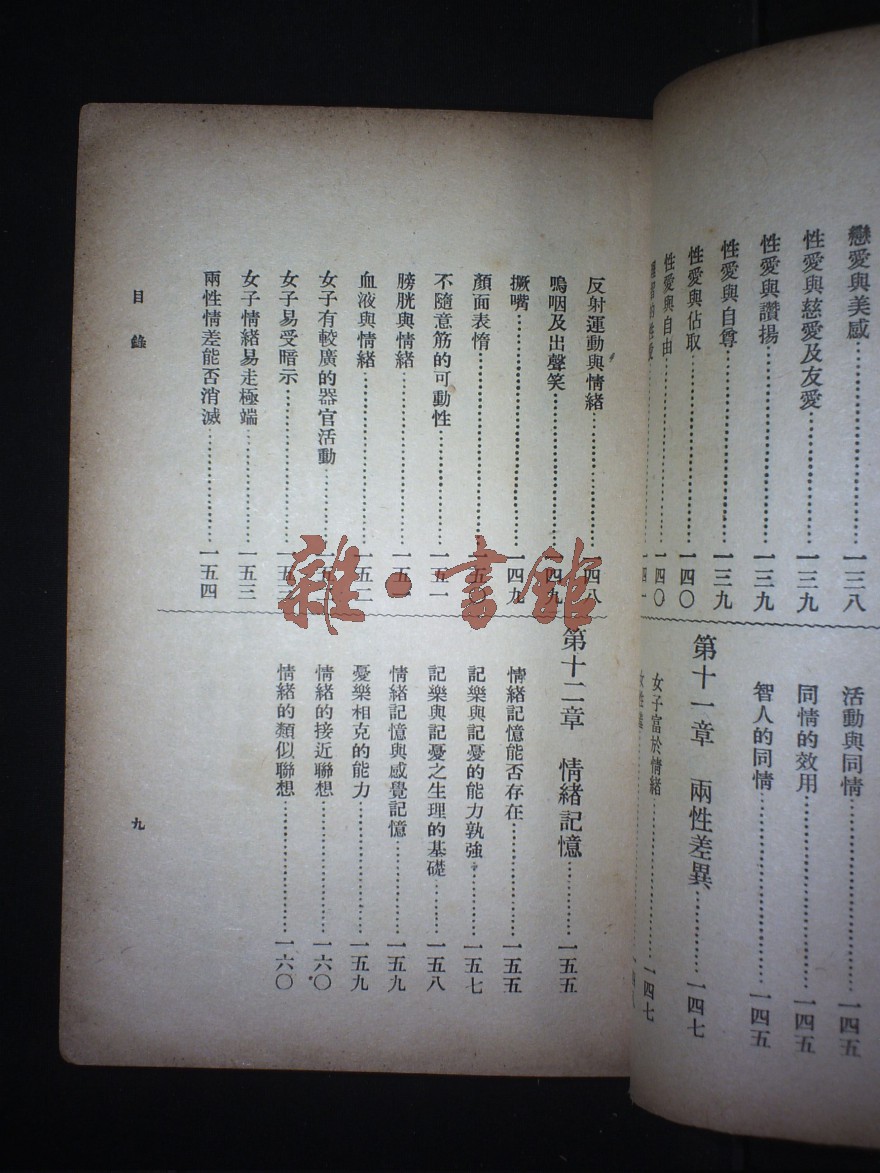 戀愛與美感……………一三八
性愛與慈愛及友愛……………一三九
性愛與讚揚……………一三九
性愛與自尊……………一三九
性愛與佔取……………一四〇
性愛與自由……………一四〇
活動與同情……………一四五
同情的效用……………一四五
智人的同情……………一四五
第十一章　兩性差異……………一四七
女子富於情緒……………一四七
反射運動與情緒……………一四八
嗚咽及出聲笑……………一四九
撅嘴……………一四九
顏面表惰……………一五〇
不隨意筋的可動性……………一五一
膀胱與情緒……………一五一
血液與情緒……………一五二
女子有較廣的器官活動……………一五二
女子易受暗示……………一五三
女子情緒易走極端……………一五三
兩性情差能否消滅……………一五四
第十二章　情緒記憶……………一五五
情緒記憶能否存在……………一五五
記樂與記憂的能力孰強……………一五七
記樂與記憂之生理的基礎……………一五八
情緒記憶與感覺記憶……………一五九
憂樂相克的能力……………一五九
情緒的接近聯想……………一六〇
情緒的類似聯想……………一六〇
目錄
九
雜·書館